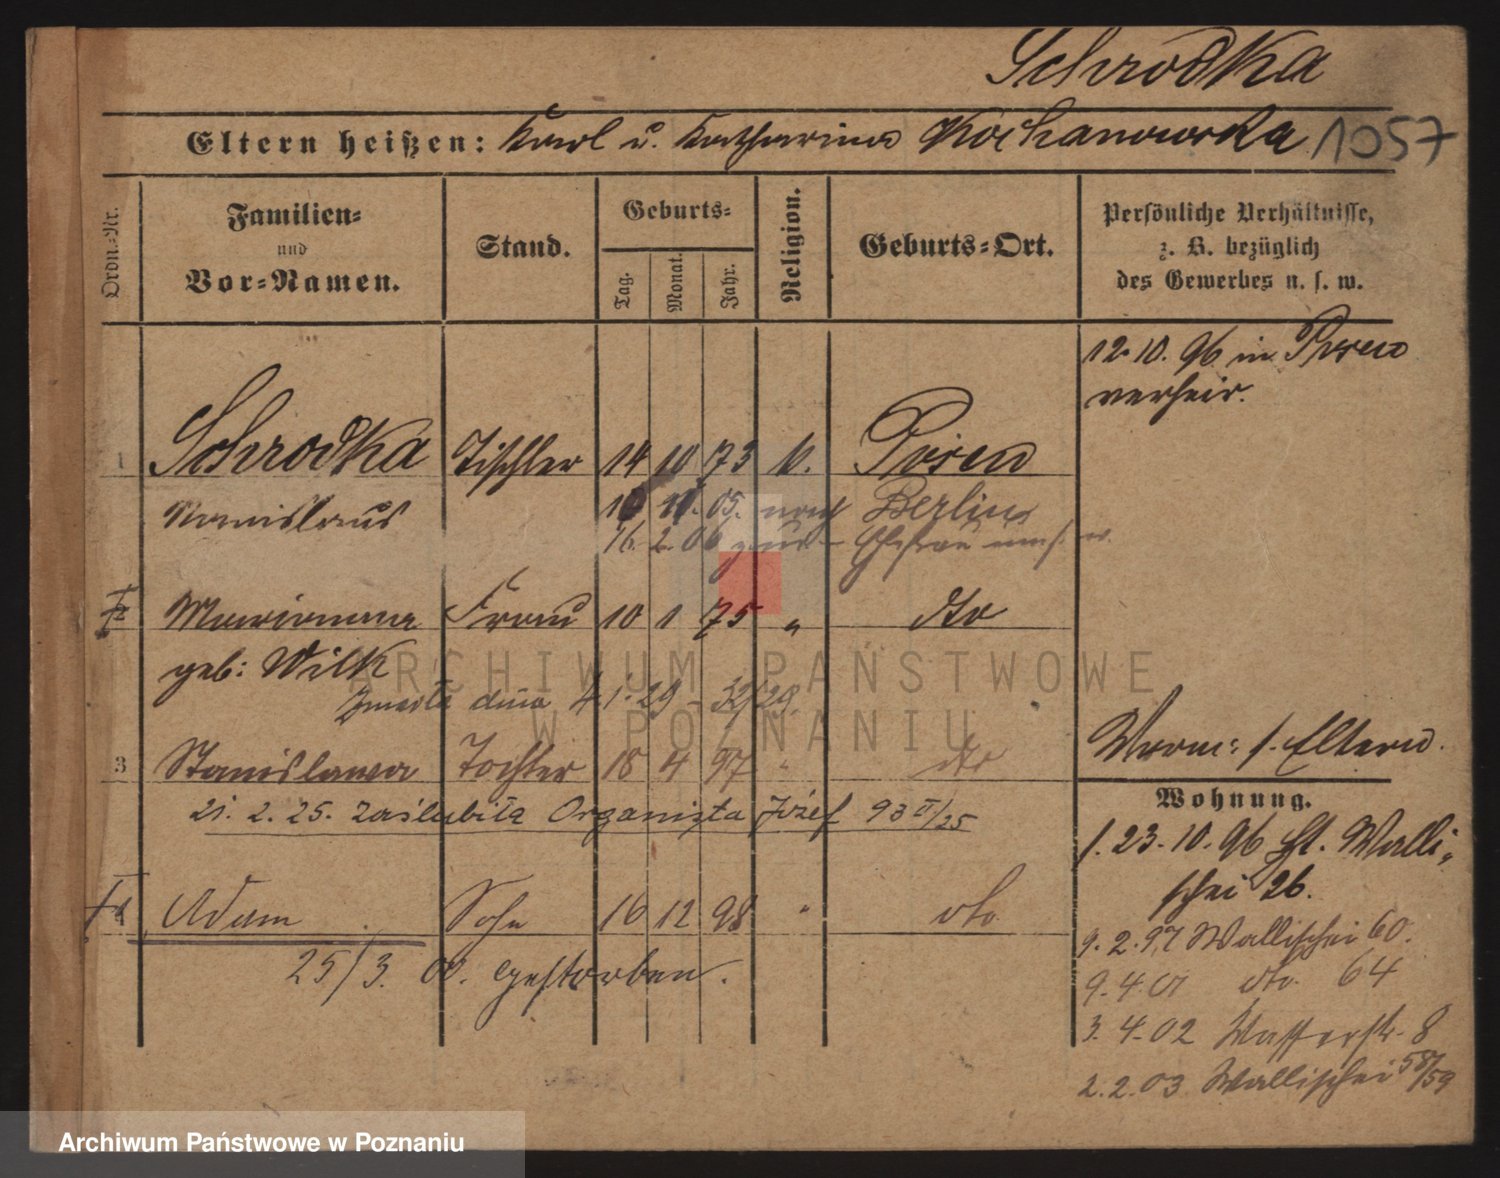 Schrodka
Eltern heißen: Karl u. Katharina Kochanowska 1057
Ordn.-Nr.
Familien-
und
Vor-Namen.
Stand.
Geburts-
Tag. Monat. Jahr.
Religion.
Geburts-Ort.
Persönliche Verhältnisse,
z. B. bezüglich
des Gewerbes u. s. w.
12.10.96 in Posen
verheir.
1 Schrodka Tischler 14 10 73 k. Posen
Stanislaus
10. 05. nach Berlin
16. 2. 06 zur Ehefrau
2 Marianna Frau 10 1 75 " dto
geb: Wilk
Zmarła dnia 4.1.29 - 32/29.
3 Stanislawa Tochter 18 4 97 " dto
21. 2. 25. zaślubiła Organista Józef 93 II/25
4 Adam Sohn 16 12 98 " dto.
25/3. 00. gestorben.
Vorm: s. Eltern.
Wohnung.
f. 23.10.96 Walli-
schei 26.
9. 2. 97 Wallischei 60.
9. 4. 01 dto. 64
3. 4. 02 Wasserstr. 8
2. 2. 03 Wallischei 58/59
ARCHIWUM PAŃSTWOWE
W POZNANIU
Archiwum Państwowe w Poznaniu